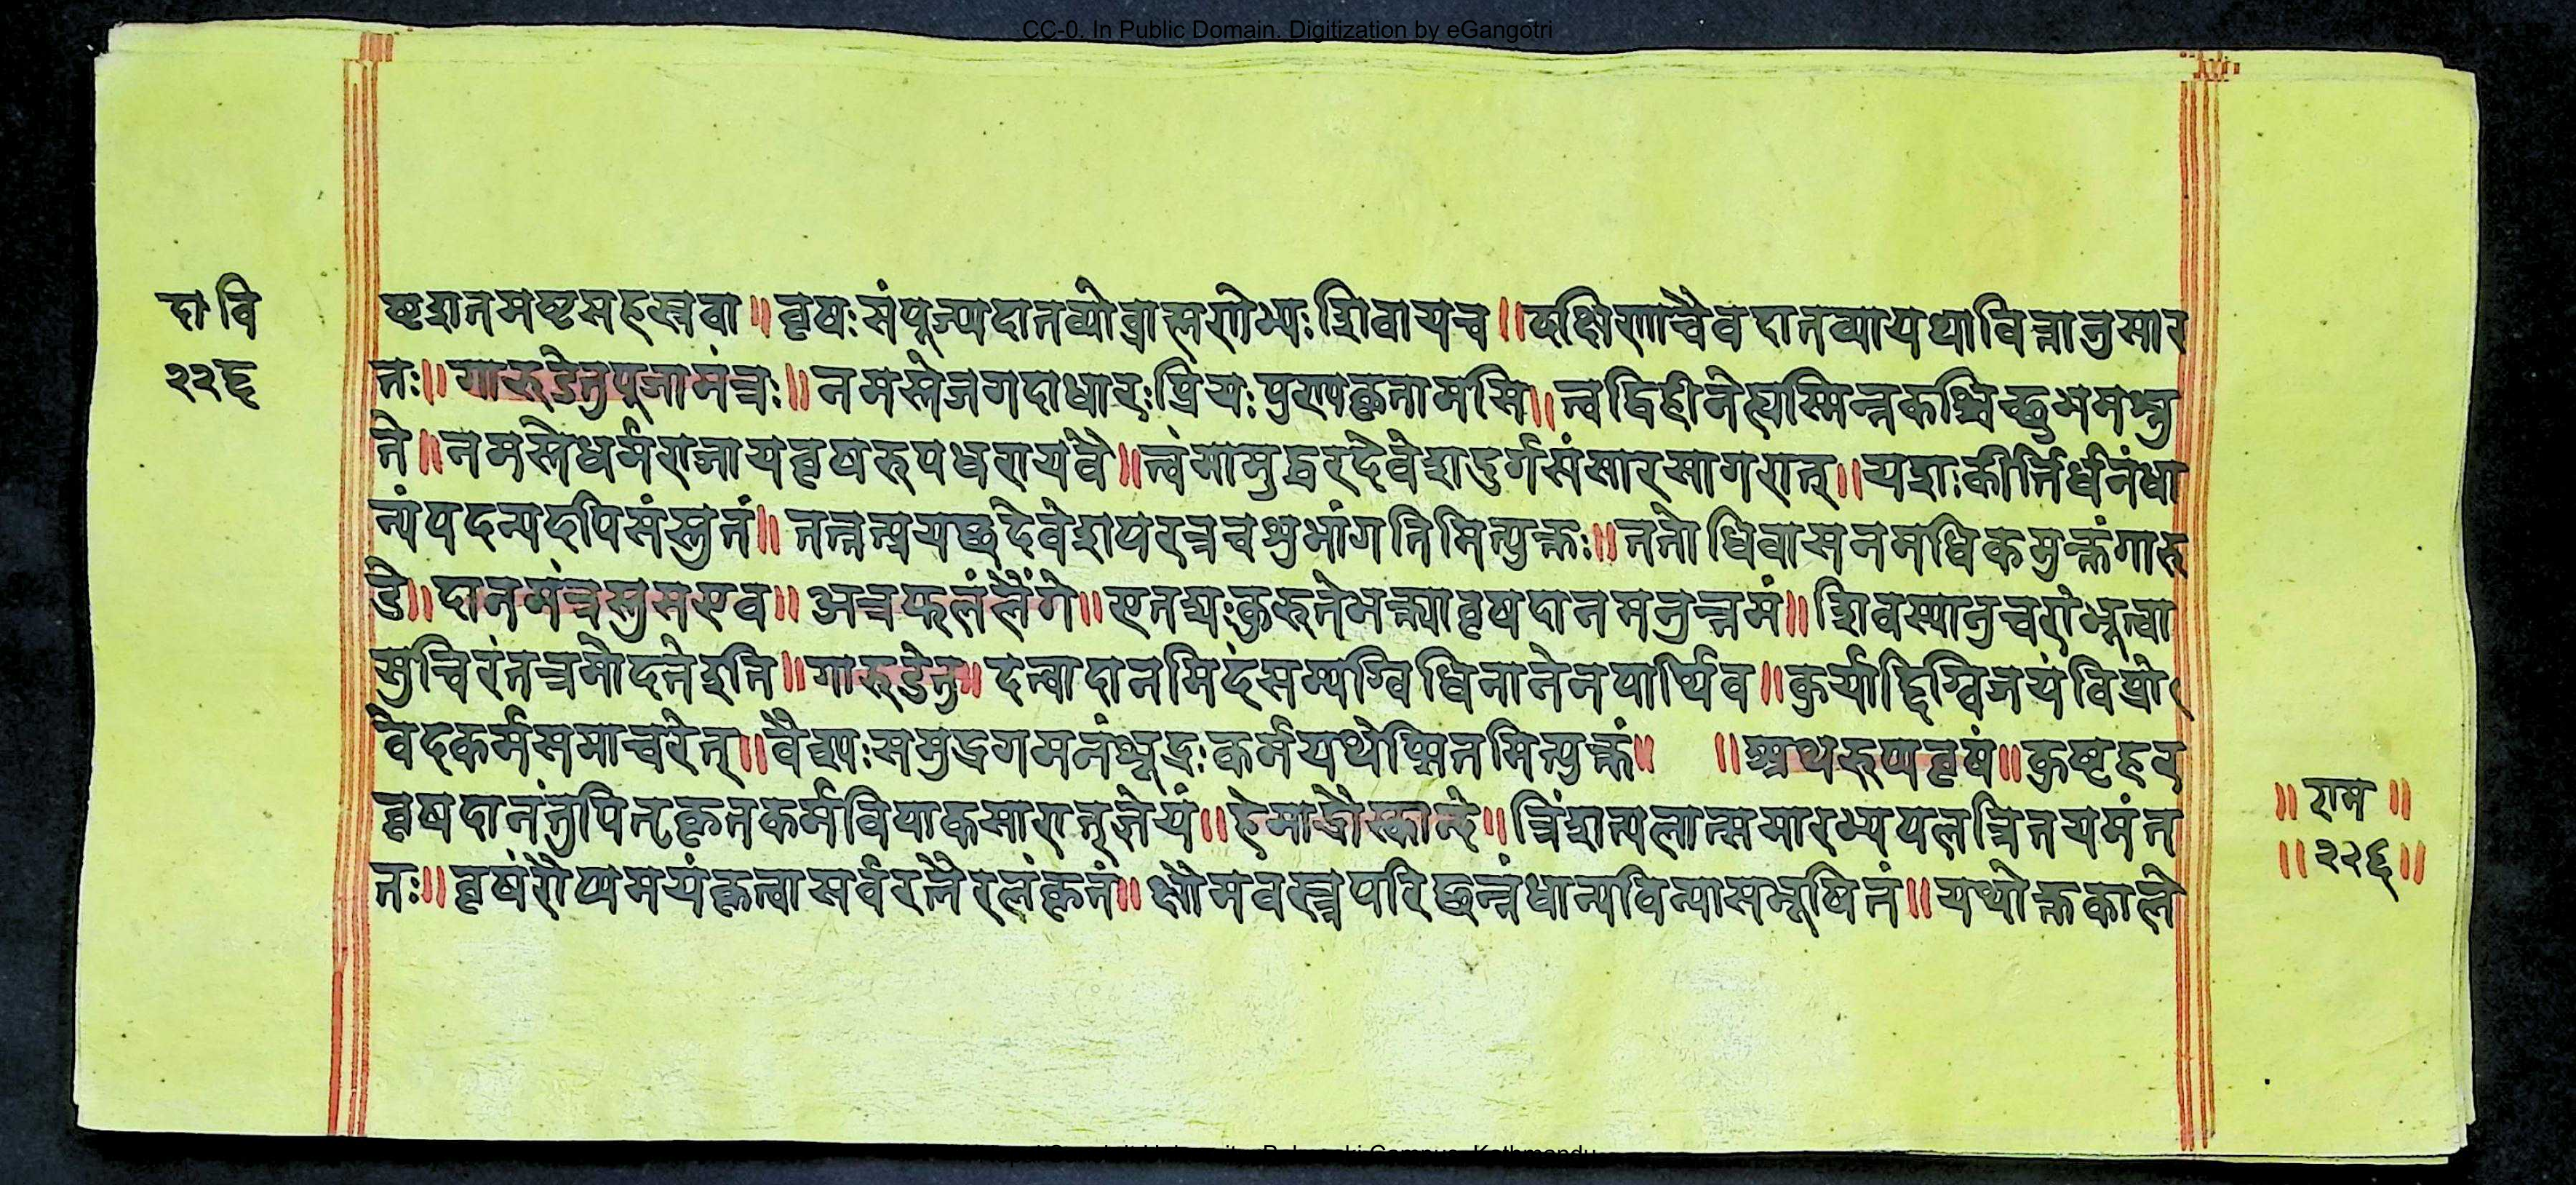 CC-0. In Public Domain. Digitization by eGangotri
दा वि
२२६
ष्टशतमष्टसहस्रवा ॥ वृषः संपूज्यदातव्यो ब्राह्मणेभ्यः शिवायच ॥ दक्षिणाचैव दातव्या यथावित्तानुसार
तः ॥ गारुडेतुपूजामंत्रः ॥ नमस्ते जगदाधारः प्रियः पुण्यकृतामसि ॥ त्वद्विहीनेह्यस्मिन्नकश्चिच्छुभमश्नु
ते ॥ नमस्ते धर्मराजाय वृषरुपधरायवै ॥ त्वंमामुद्धरदेवेश दुर्गसंसारसागरात् ॥ यशः कीर्त्तिर्धनंधा
न्यंयदन्यदपिसंस्तुतं ॥ तत्तन्प्रयच्छदेवेशपरत्रचशुभांगतिमित्युक्तः ॥ ततोधिवासनमधिकमुक्तंगारु
डे ॥ दानमंत्रस्तुसएव ॥ अत्रफलंलैंगे ॥ एतद्यः कुरुतेभक्त्यावृषदानमनुत्तमं ॥ शिवस्यानुचरोभूत्वा
सुचिरंतत्रमोदतेइति ॥ गारुडेतु ॥ दत्वादानमिदंसम्यग्विधिनानेनपार्थिव ॥ कुर्याद्दिग्विजयंविप्रो
वेदकर्मसमाचरेत् ॥ वैश्यः समुद्रगमनंशूद्रः कर्मयथेप्सितमित्युक्तं ॥ ॥ अथरुप्यवृषं ॥ कुष्टहर
वृषदानंतुपितृकृतकर्मविपाकसारात्ज्ञेयं ॥ हेमाद्रौस्कान्दे ॥ त्रिंशत्पलात्समारभ्यपलत्रितयमंत
तः ॥ वृषंरौप्यमयंकृत्वासर्वरत्नैरलंकृतं ॥ क्षौमवस्त्रपरिछन्नंधान्यविन्यासभूषितं ॥ यथोक्तकाले
॥ राम ॥
॥ २२६ ॥